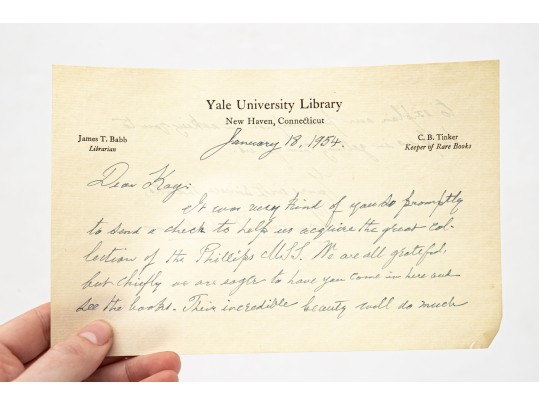 Yale University Library
New Haven, Connecticut
James T. Babb
Librarian
C. B. Tinker
Keeper of Rare Books
January 18, 1954.
Dear Kay:
It was very kind of you so promptly
to send a check to help us acquire the great col-
lection of the Phillips MSS. We are all grateful,
but chiefly we are eager to have you come in here and
see the books. Their incredible beauty will do much